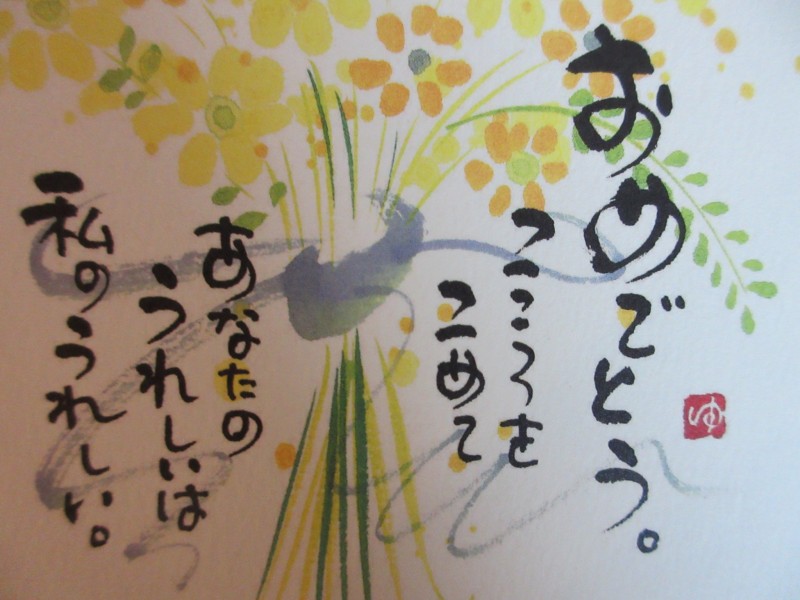 おめでとう。
こころを
こめて
あなたの
うれしいは
私のうれしい。
ゆ